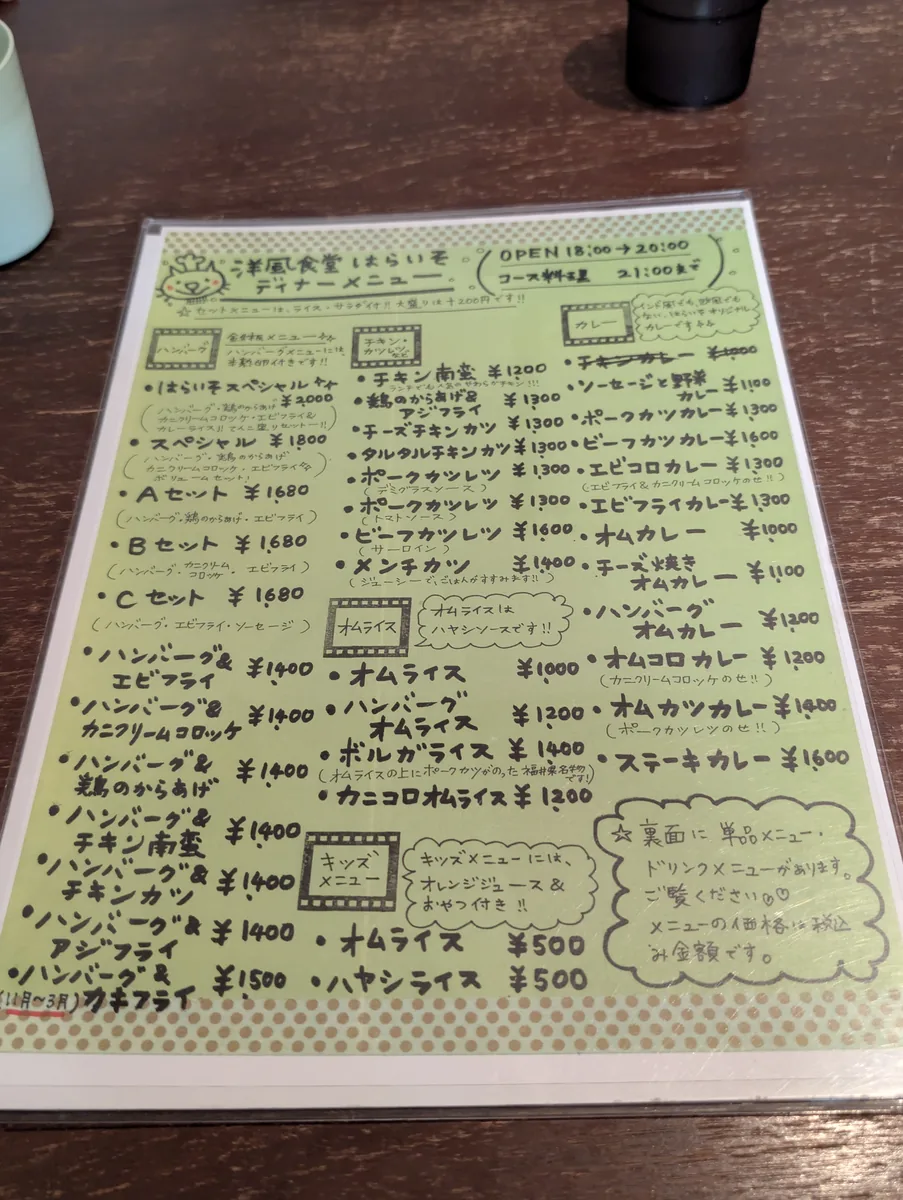 洋風食堂 はらいそ
ディナーメニュー
OPEN 18:00→20:00
コース料理 21:00まで
☆セットメニューは、ライス・サラダ付!! 大盛りは+200円です!!
ハンバーグ
全部板メニュー☆☆
ハンバーグメニューには、
半熟卵付きです!!
・はらいそスペシャル☆☆
¥2,000
(ハンバーグ・鶏のからあげ
カニクリームコロッケ・エビフライ&
カレーライス!! てんこ盛りセットー!!)
・スペシャル ¥1,800
(ハンバーグ・鶏のからあげ
カニクリームコロッケ・エビフライ☆
ボリュームセット!)
・Aセット ¥1,680
(ハンバーグ・鶏のからあげ・エビフライ)
・Bセット ¥1,680
(ハンバーグ・カニクリームコロッケ・エビフライ)
・Cセット ¥1,680
(ハンバーグ・エビフライ・ソーセージ)
・ハンバーグ&
エビフライ ¥1,400
・ハンバーグ&
カニクリームコロッケ ¥1,400
・ハンバーグ&
鶏のからあげ ¥1,400
・ハンバーグ&
チキン南蛮 ¥1,400
・ハンバーグ&
チキンカツ ¥1,400
・ハンバーグ&
アジフライ ¥1,400
・ハンバーグ&
(11月〜3月) カキフライ ¥1,500
チキン・
カツレツ
など
・チキン南蛮 ¥1,200
ランチでも人気のやわらかチキン!!!
・鶏のからあげ&
アジフライ ¥1,300
・チーズチキンカツ ¥1,300
・タルタルチキンカツ ¥1,300
・ポークカツレツ ¥1,300
(デミグラスソース)
・ポークカツレツ ¥1,300
(トマトソース)
・ビーフカツレツ ¥1,600
(サーロイン)
・メンチカツ ¥1,400
(ジューシーで、ごはんがすすみます!!)
オムライス
オムライスは
ハヤシソースです!!
・オムライス ¥1,000
・ハンバーグ
オムライス ¥1,200
・ボルガライス ¥1,400
(オムライスの上にポークカツがのった福井県名物です!)
・カニコロオムライス ¥1,200
キッズ
メニュー
キッズメニューには、
オレンジジュース&
おやつ付き!!
・オムライス ¥500
・ハヤシライス ¥500
カレー
インド風でも、欧風でも
ない、はらいそオリジナル
カレーです☆☆
・チキンカレー ¥1,000
・ソーセージと野菜
カレー ¥1,100
・ポークカツカレー ¥1,300
・ビーフカツカレー ¥1,600
・エビコロカレー ¥1,300
(エビフライ&カニクリームコロッケのせ!!)
・エビフライカレー ¥1,300
・オムカレー ¥1,000
・チーズ焼き
オムカレー ¥1,100
・ハンバーグ
オムカレー ¥1,200
・オムコロカレー ¥1,200
(カニクリームコロッケのせ!!)
・オムカツカレー ¥1,400
(ポークカツレツのせ!!)
・ステーキカレー ¥1,600
☆裏面に単品メニュー・
ドリンクメニューがあります。
ご覧ください♡♡
メニューの価格は税込
み金額です。